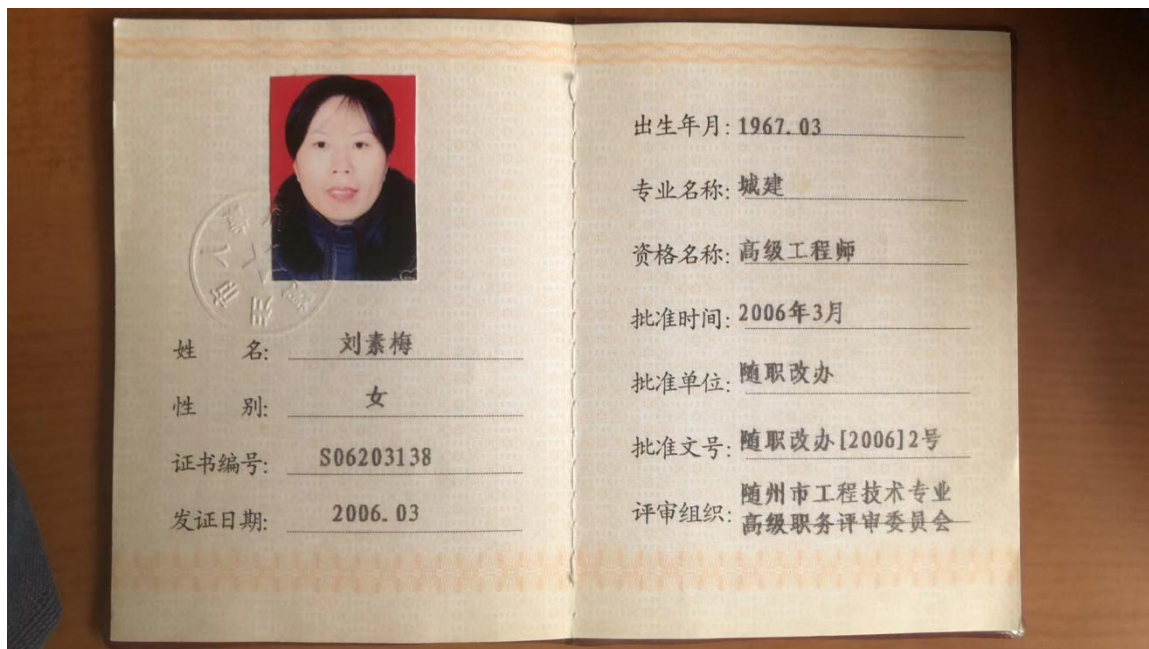 姓 名: 刘素梅
性 别: 女
证书编号: S06203138
发证日期: 2006.03
出生年月: 1967.03
专业名称: 城建
资格名称: 高级工程师
批准时间: 2006年3月
批准单位: 随职改办
批准文号: 随职改办[2006]2号
评审组织: 随州市工程技术专业
高级职务评审委员会